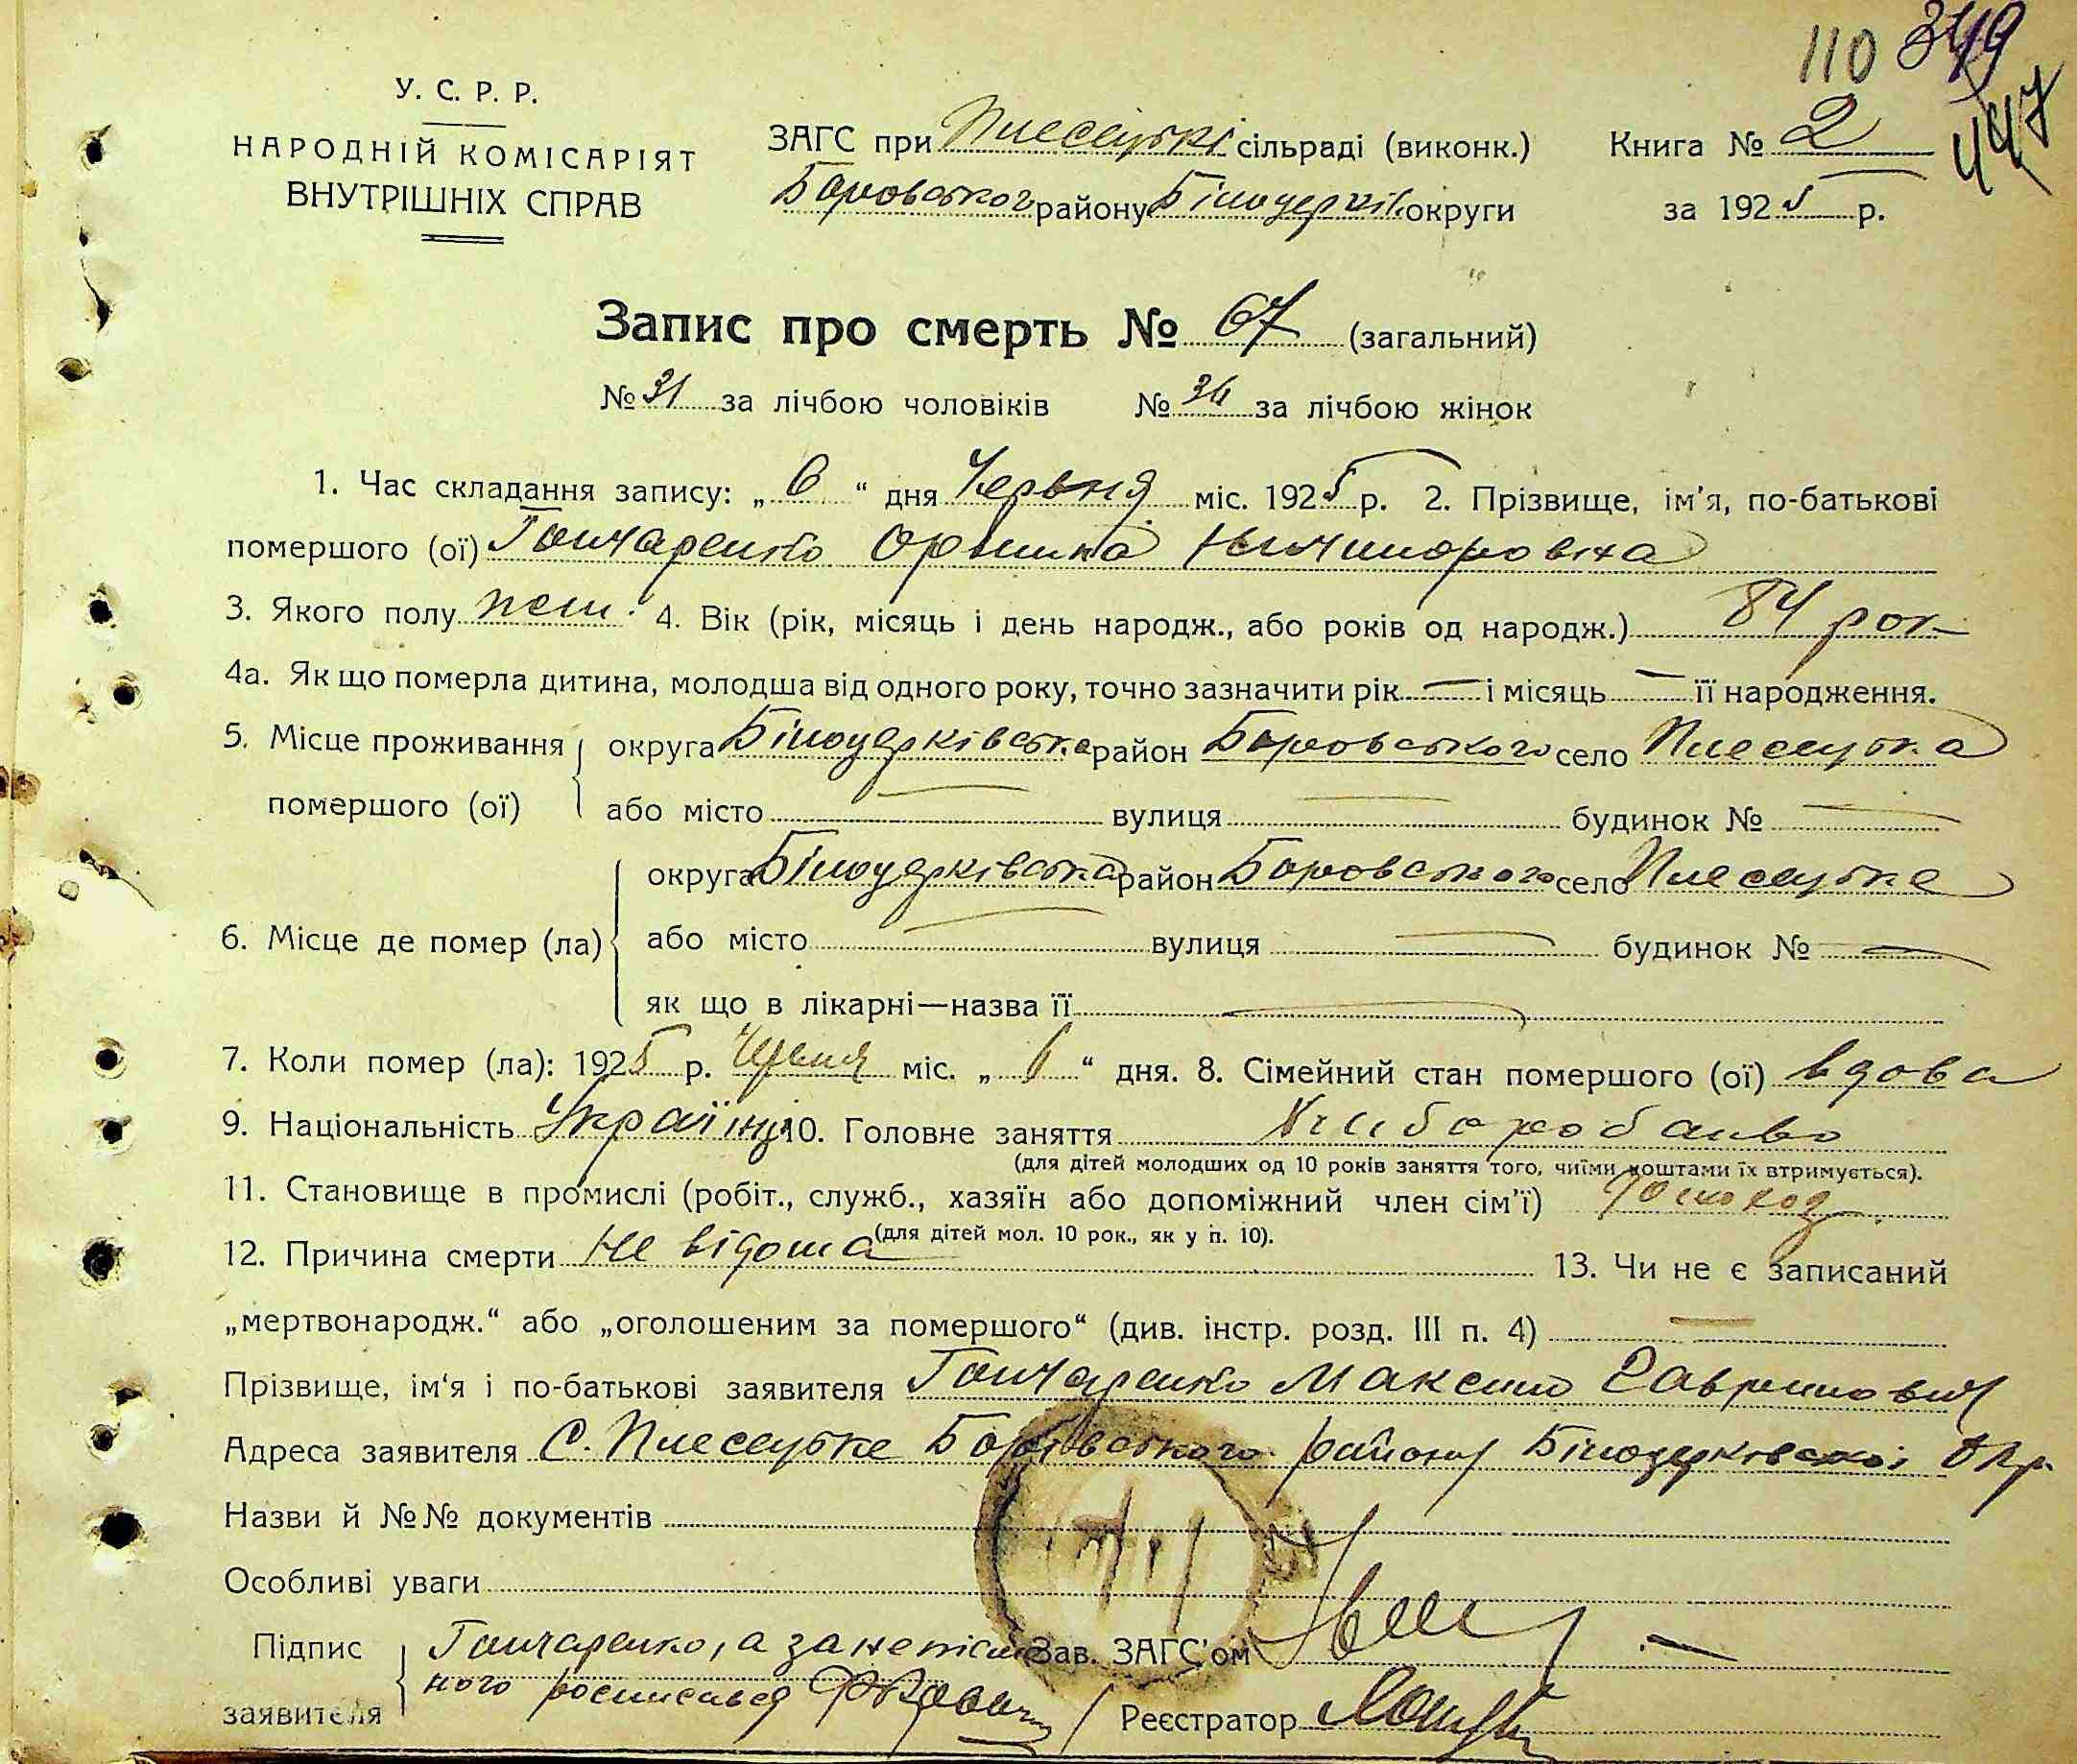 110 349
447
У. С. Р. Р.
НАРОДНІЙ КОМІСАРІЯТ
ВНУТРІШНІХ СПРАВ
ЗАГС при Плесецькі сільраді (виконк.)
Боровського району Білоцерків. округи
Книга № 2
за 1925 р.
Запис про смерть № 67 (загальний)
№ 31 за лічбою чоловіків № 36 за лічбою жінок
1. Час складання запису: „ 6 “ дня Червня міс. 1925 р. 2. Прізвище, ім'я, по-батькові
помершого (ої) Гончаренко Орышка
3. Якого полу жен. 4. Вік (рік, місяць і день народж., або років од народж.) 84 рок
4а. Як що померла дитина, молодша від одного року, точно зазначити рік — і місяць — її народження.
5. Місце проживання помершого (ої) округа Білоцерківська район Боровського село Плесецька
або місто — вулиця — будинок № —
6. Місце де помер (ла) округа Білоцерківська район Боровського село Плесецьке
або місто — вулиця — будинок № —
як що в лікарні—назва її —
7. Коли помер (ла): 1925 р. Червня міс. „ 6 “ дня. 8. Сімейний стан помершого (ої) вдова
9. Національність Україн. 10. Головне заняття Хлиборобство
(для дітей молодших од 10 років заняття того, чиїми коштами їх втримується).
11. Становище в промислі (робіт., служб., хазяїн або допоміжний член сім'ї)
(для дітей мол. 10 рок., як у п. 10).
12. Причина смерти Не відома 13. Чи не є записаний
„мертвонародж.“ або „оголошеним за помершого“ (див. інстр. розд. III п. 4) —
Прізвище, ім'я і по-батькові заявителя Гончаренко Максим Гаврилович
Адреса заявителя С. Плесецьке Боровського району Білоцерківської Окр.
Назви й №№ документів
Особливі уваги
Підпис заявителя Гончаренко, а за непісьм
ного росписався
Зав. ЗАГС'ом
Реєстратор